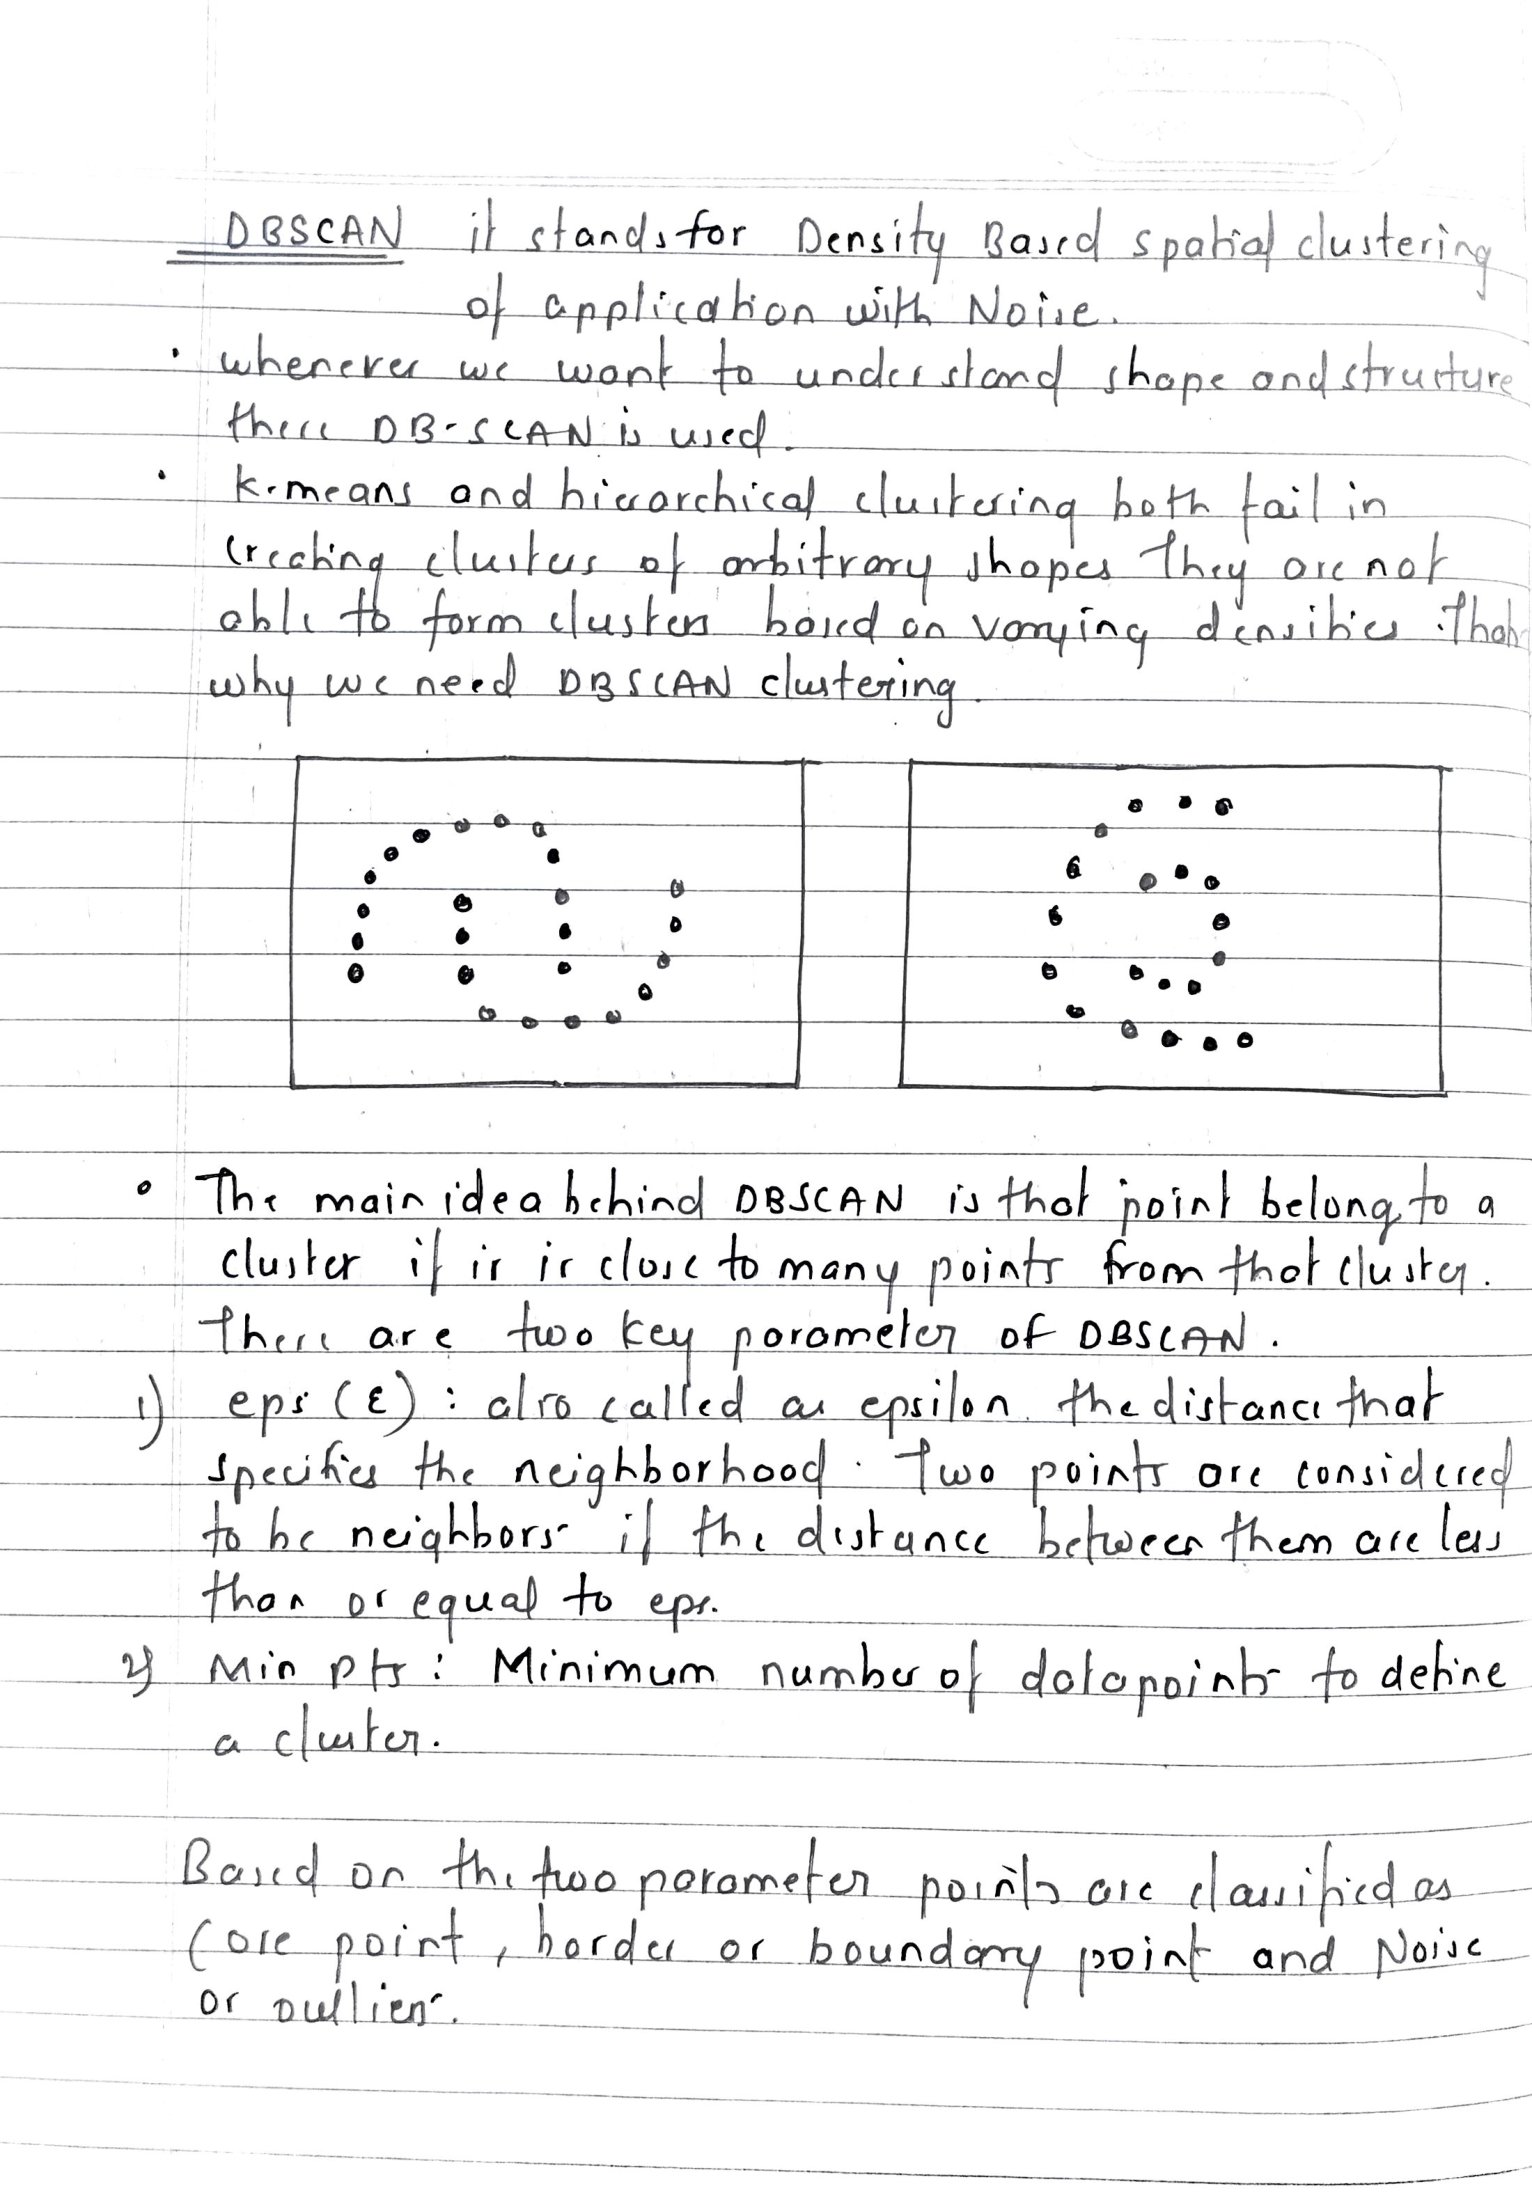 DBSCAN it stands for Density Based spatial clustering
of application with Noise.
• whenever we want to understand shape and structure
there DB-SCAN is used.
• k-means and hierarchical clustering both fail in
creating clusters of arbitrary shapes They are not
able to form clusters based on varying densities. That
why we need DBSCAN clustering.
• The main idea behind DBSCAN is that point belong to a
cluster if is is close to many points from that cluster.
There are two key parameter of DBSCAN.
1) eps (ε) : also called as epsilon. the distance that
specifies the neighborhood. Two points are considered
to be neighbors if the distance between them are less
than or equal to eps.
2) Min pts : Minimum number of datapoints to define
a cluster.
Based on the two parameter points are classified as
Core point, border or boundary point and Noise
or outlier.